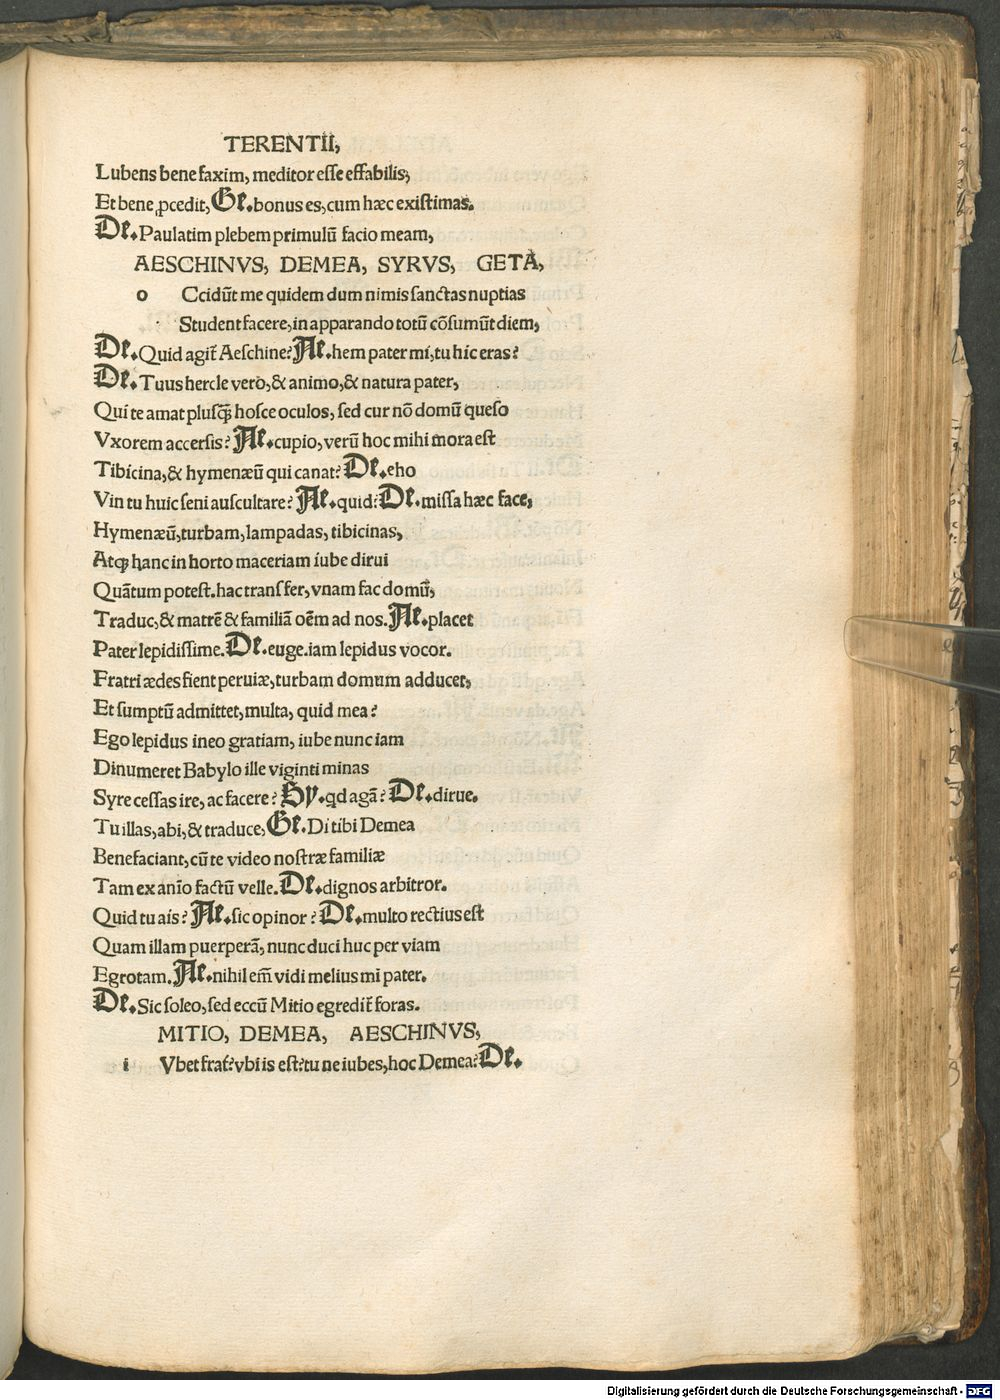 TERENTII,
Lubens bene faxim, meditor esse effabilis,
Et bene ꝓcedit, Ge. bonus es, cum hæc existimas.
De. Paulatim plebem primulū facio meam,
AESCHINVS, DEMEA, SYRVS, GETA,
o Ccidūt me quidem dum nimis sanctas nuptias
Student facere, in apparando totū cōsumūt diem,
De. Quid agit̃ Aeschine? Ae. hem pater mi, tu hic eras?
De. Tuus hercle vero, & animo, & natura pater,
Qui te amat plusq̄ hosce oculos, sed cur nō domū queso
Vxorem accersis? Ae. cupio, verū hoc mihi mora est
Tibicina, & hymenæū qui canat? De. eho
Vin tu huic seni auscultare? Ae. quid? De. missa hæc face,
Hymenæū, turbam, lampadas, tibicinas,
Atqꝫ hanc in horto maceriam iube dirui
Quātum potest. hac transfer, vnam fac domū,
Traduc, & matrē & familiā oēm ad nos. Ae. placet
Pater lepidissime. De. euge. iam lepidus vocor.
Fratri ædes fient peruiæ, turbam domum adducet,
Et sumptū admittet, multa, quid mea?
Ego lepidus ineo gratiam, iube nunc iam
Dinumeret Babylo ille viginti minas
Syre cessas ire, ac facere? Sy. qd agā? De. dirue.
Tu illas, abi, & traduce, Ge. Di tibi Demea
Benefaciant, cū te video nostræ familiæ
Tam ex anīo factū velle. De. dignos arbitror.
Quid tu ais? Ae. sic opinor? De. multo rectius est
Quam illam puerperā, nunc duci huc per viam
Egrotam. Ae. nihil em̄ vidi melius mi pater.
De. Sic soleo, sed eccū Mitio egredit̃ foras.
MITIO, DEMEA, AESCHINVS,
i Vbet frat̃? vbi is est? tu ne iubes, hoc Demea? De.
Digitalisierung gefördert durch die Deutsche Forschungsgemeinschaft - DFG